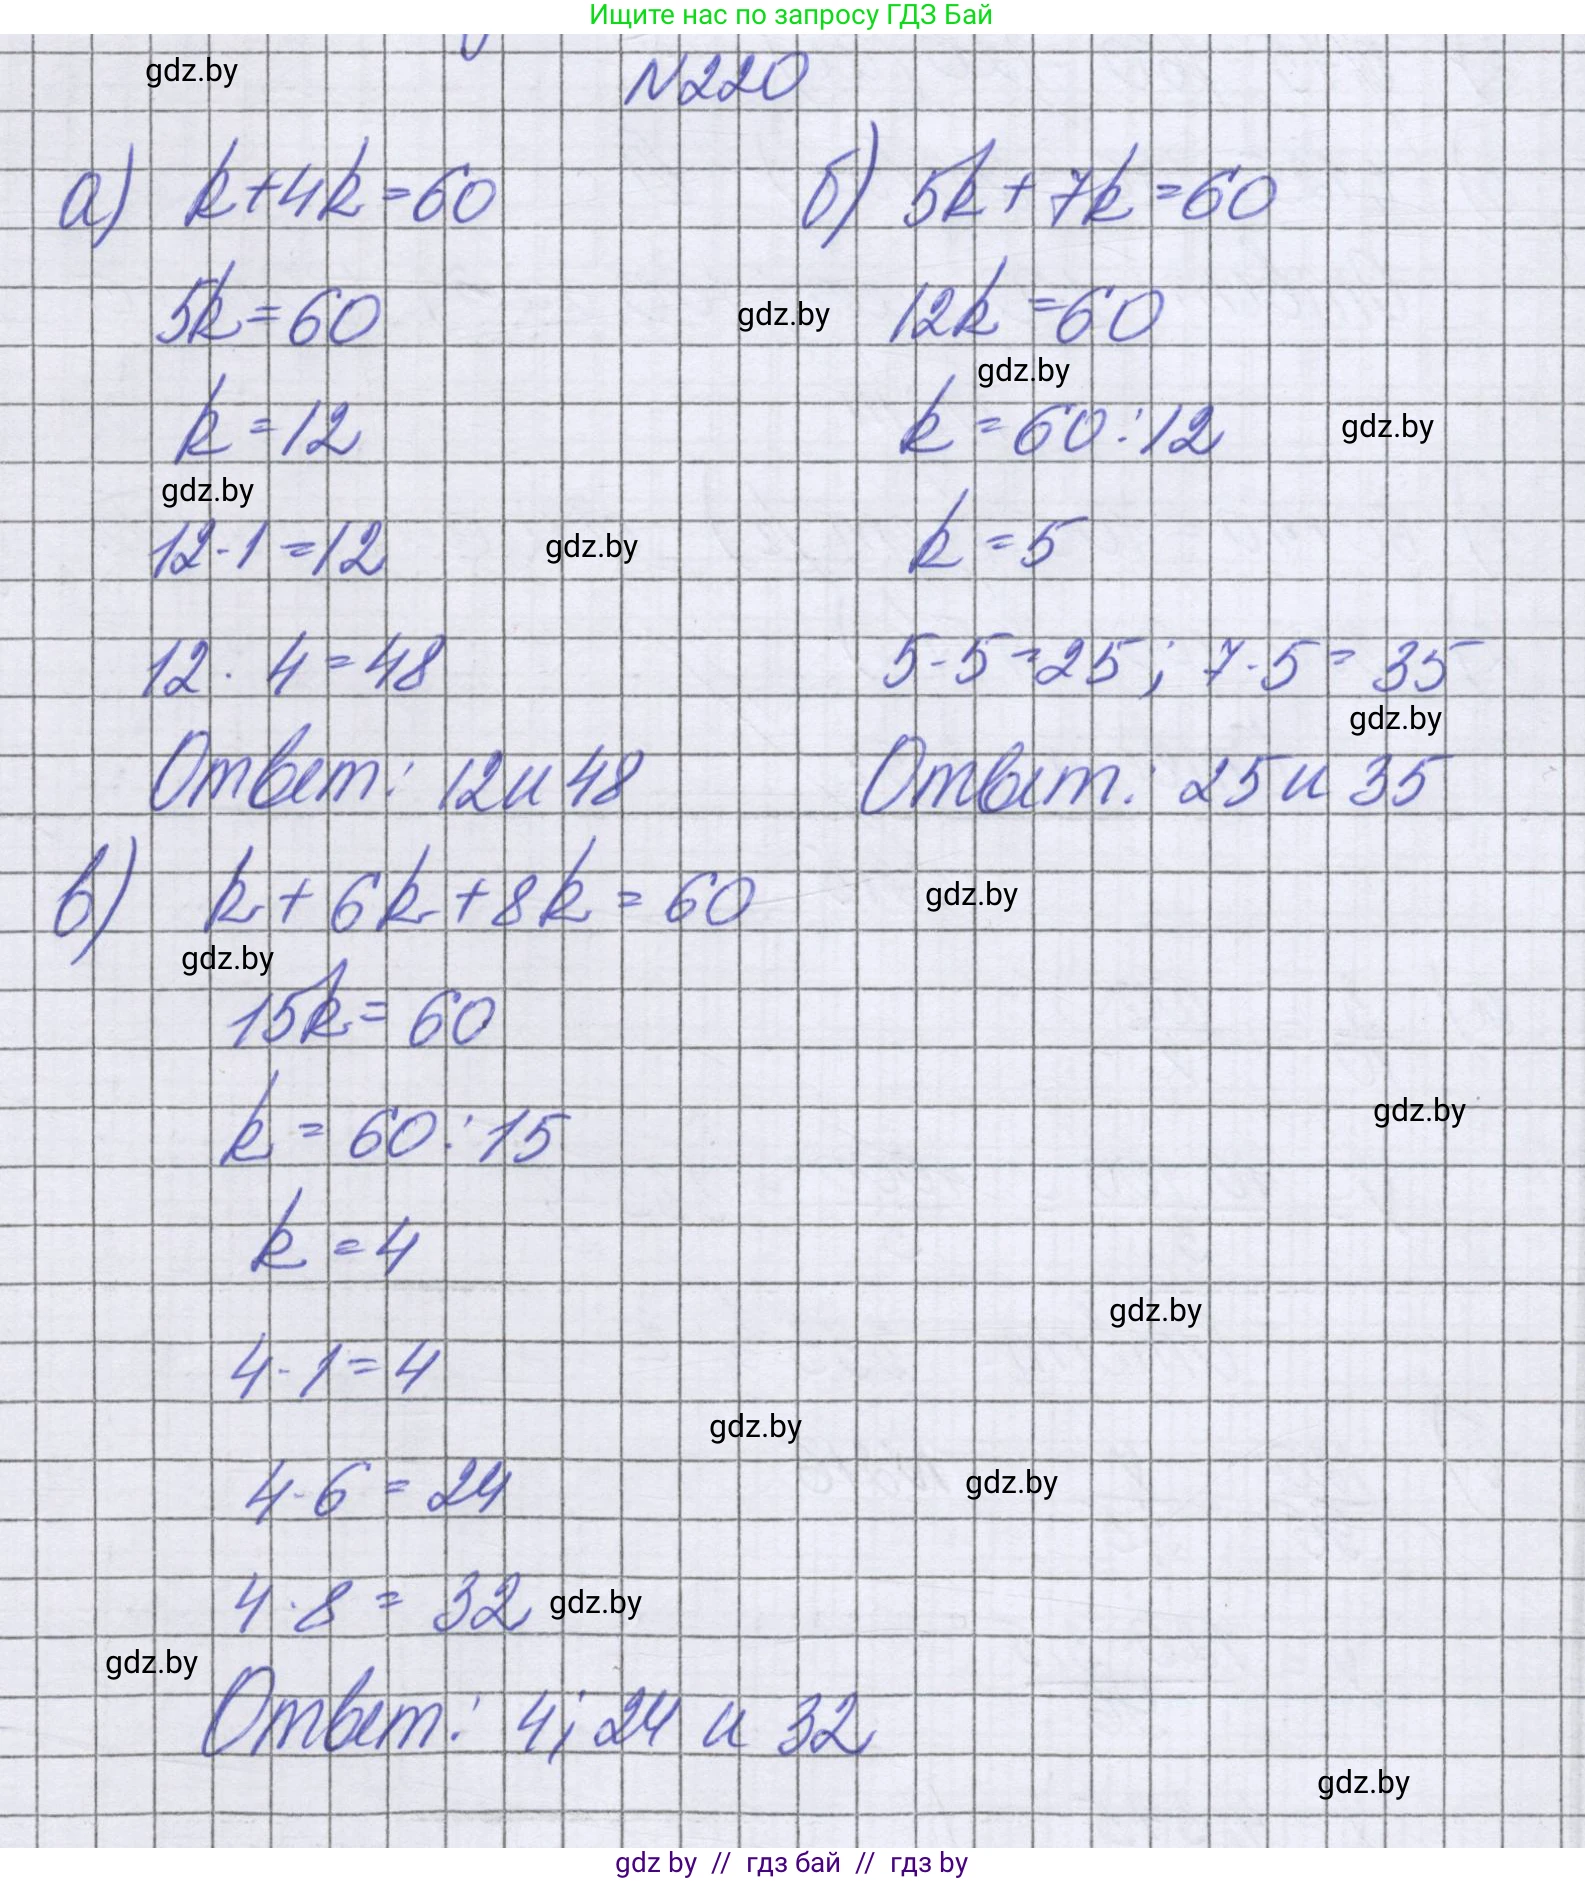 Ищите нас по запросу ГДЗ Бай
gdz.by
N220
а) k+4k=60
5k=60
k=12
gdz.by
12·1=12
gdz.by
12·4=48
Ответ: 12 и 48
б) 5k+7k=60
gdz.by
12k=60
gdz.by
k=60:12
gdz.by
k=5
5·5=25; 7·5=35
gdz.by
Ответ: 25 и 35
в) k+6k+8k=60
gdz.by
gdz.by
15k=60
k=60:15
gdz.by
k=4
gdz.by
4·1=4
gdz.by
4·6=24
gdz.by
4·8=32
gdz.by
gdz.by
Ответ: 4; 24 и 32
gdz.by
gdz by // гдз бай // гдз by